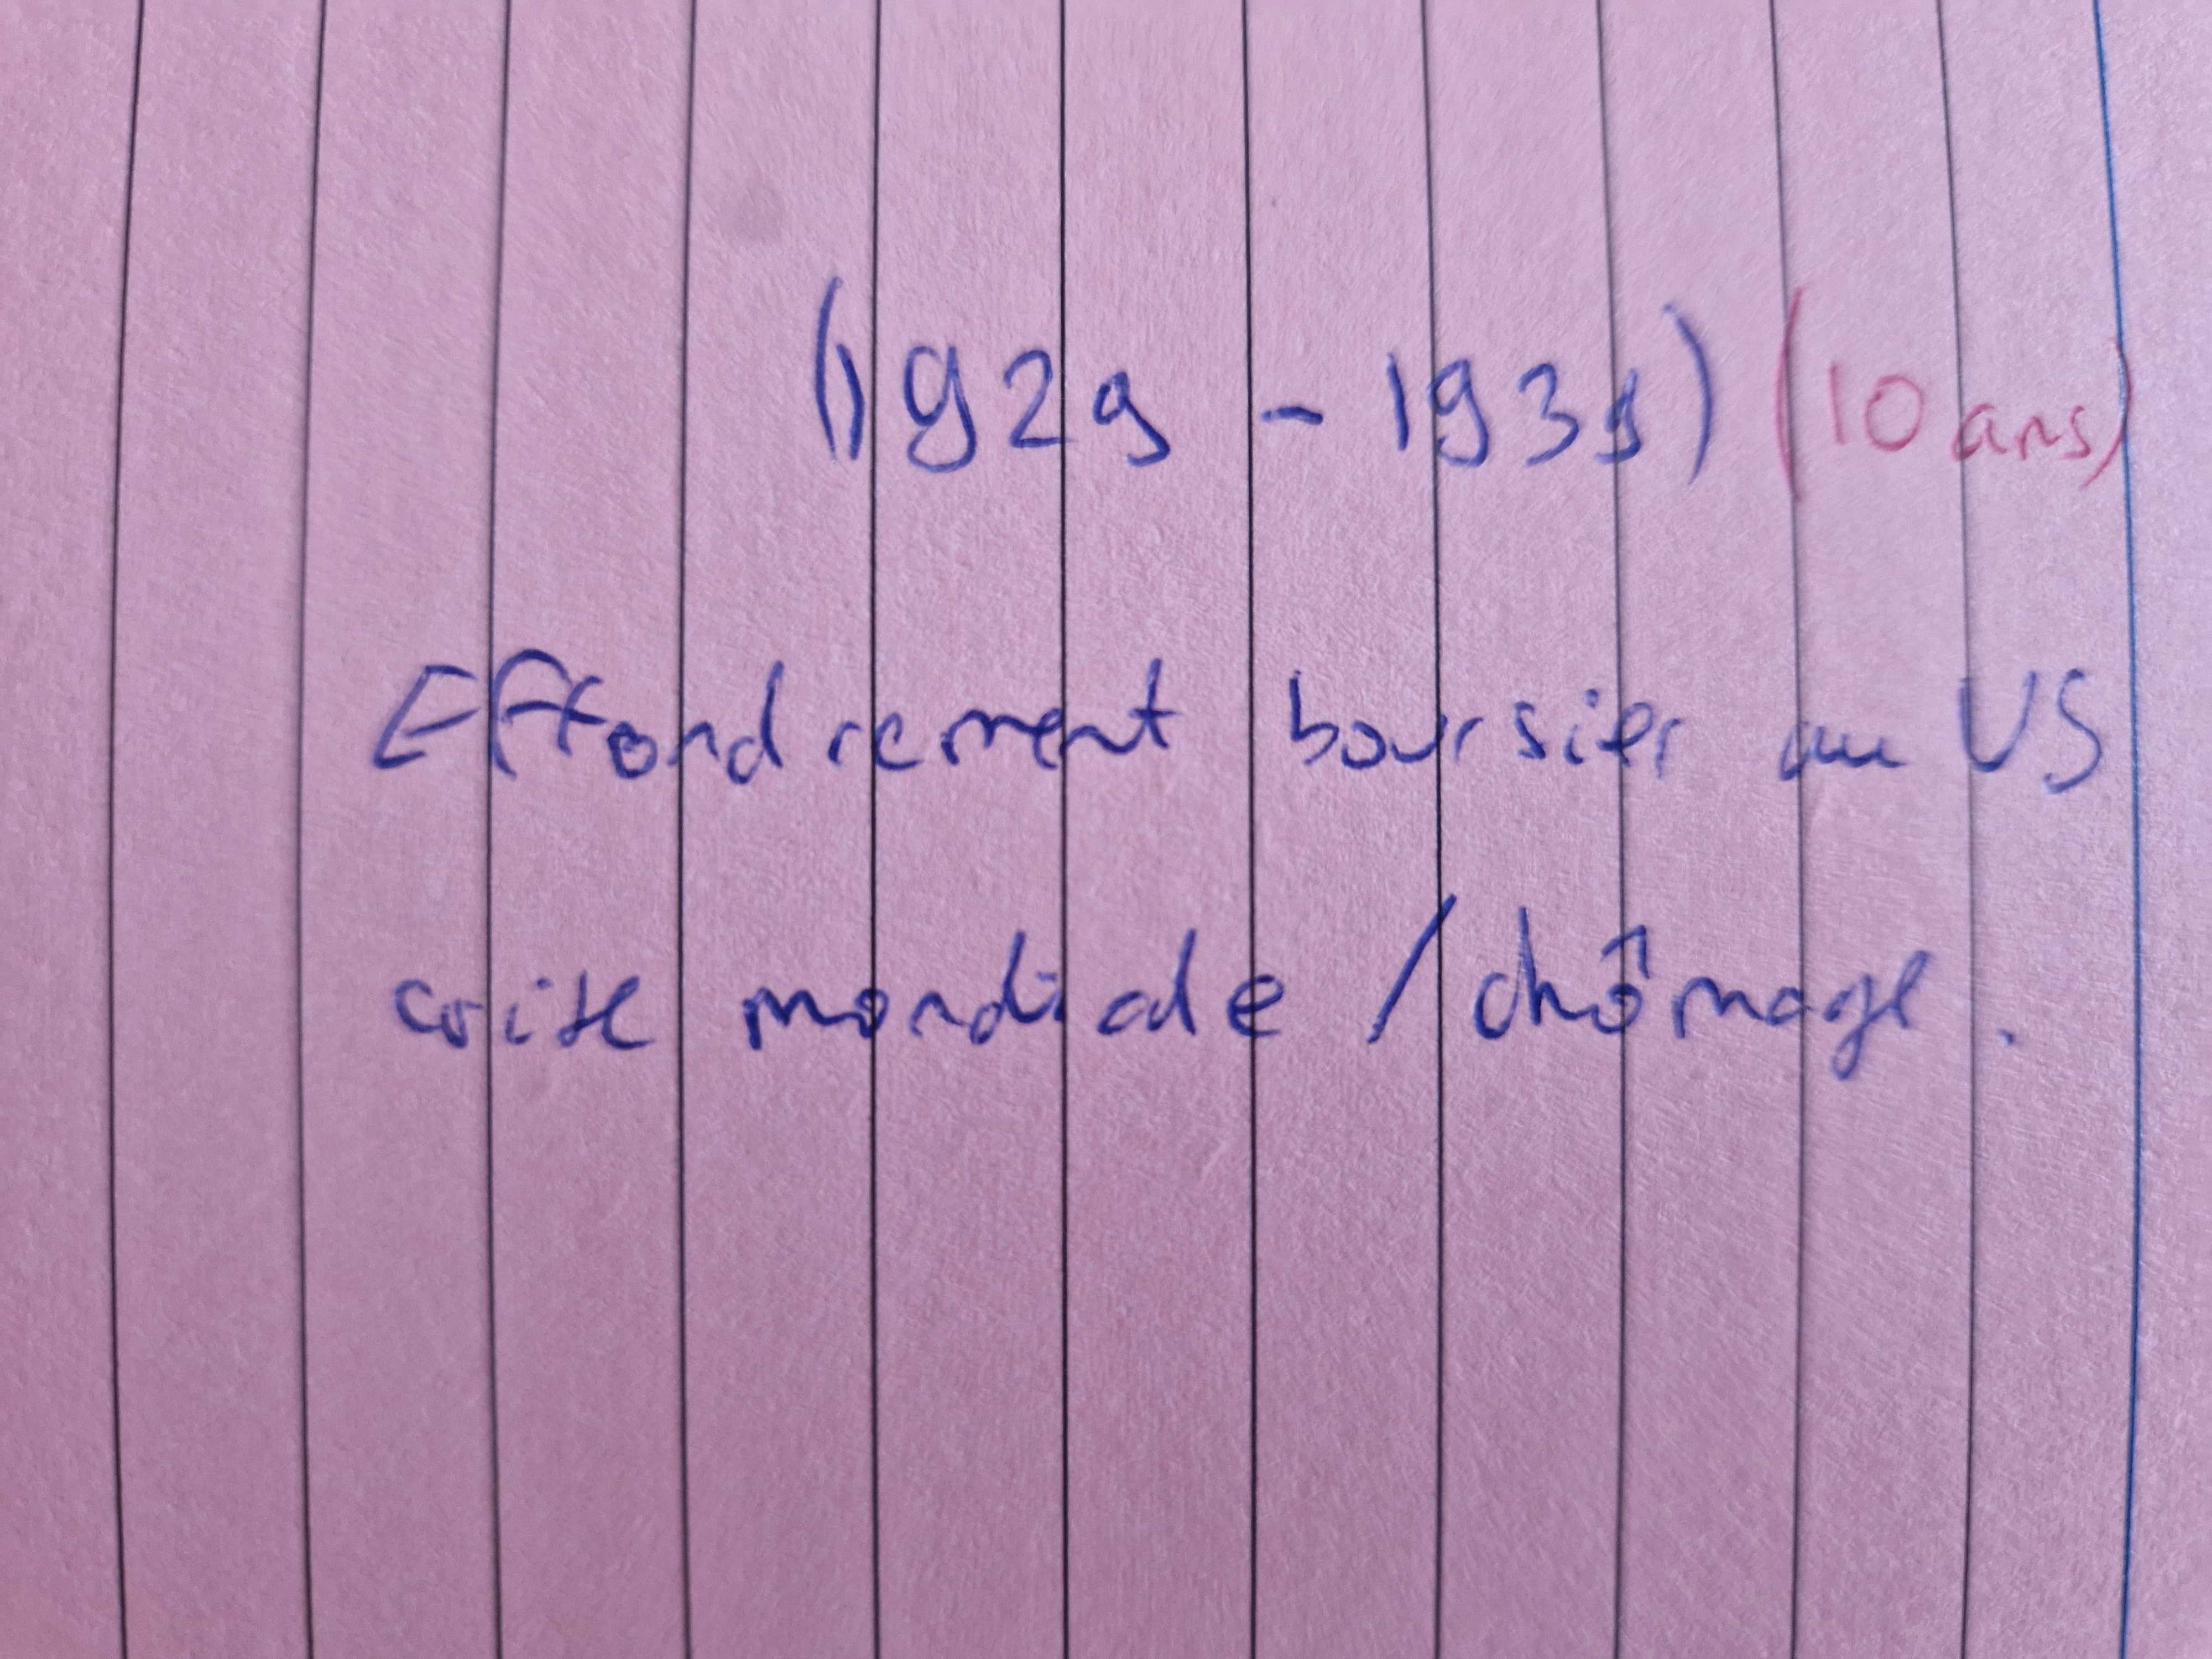 (1929 - 1939) (10 ans)
Effondrement boursier au US
crise mondiale / chômage.